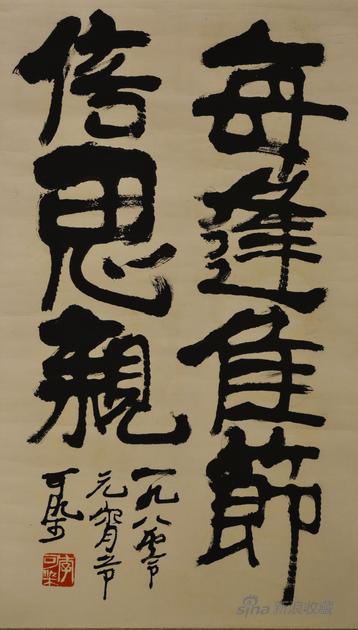 每逢佳節
倍思親
一九八零年
元宵节
可染
李可染
sina 新浪收藏